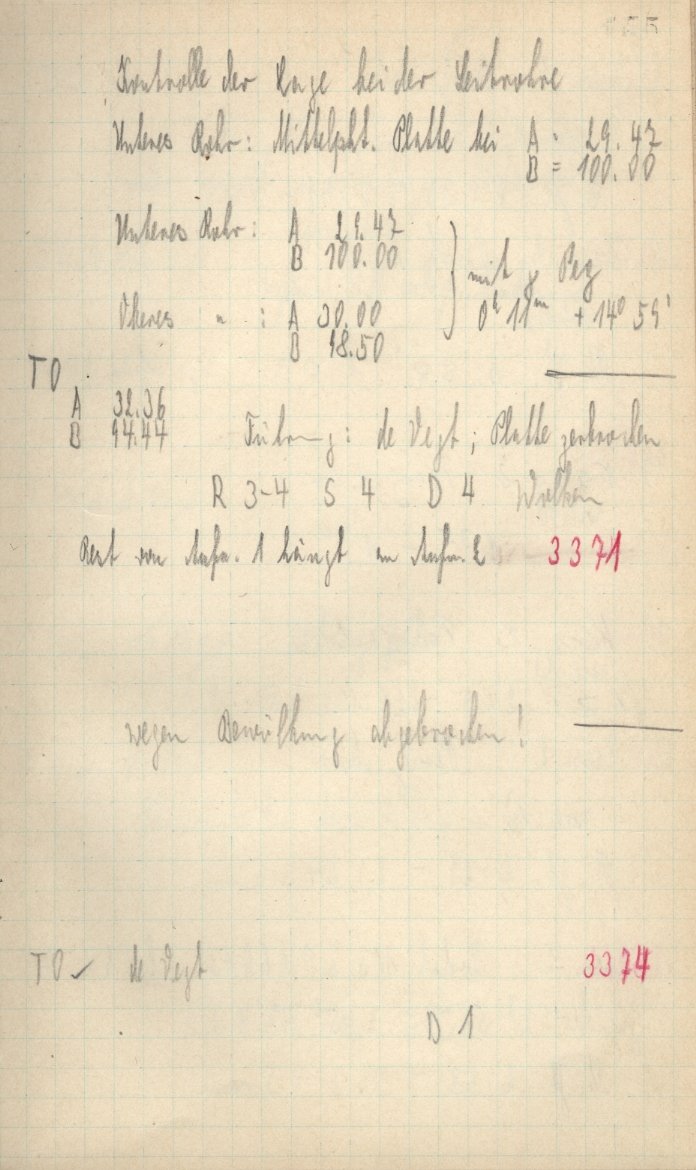 Kontrolle der Lage beider Leitrohre
Unteres Rohr: Mittelpkt. Platte bei A = 29.47
B = 100.00
Unteres Rohr: A 29.47
B 100.00
mit γ Peg
Oberes " : A 30.00 0h 11m + 14° 59'
B 98.50
TO
A 32.36
B 94.44 Führung: de Vegt; Platte zerbrochen
R 3-4 S 4 D 4 Wolken
Rest von Aufn. 1 hängt an Aufn. 2 3371
wegen Bewölkung abgebrochen!
TO ✓ de Vegt 3374
D 1